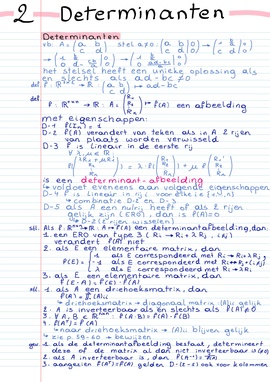 2 Determinanten
Determinanten
vb: A = (a b / c d) stel ax=0
het stelsel heeft een unieke oplossing als
en slechts als ad-bc ≠ 0
def. P: ℝ²ˣ² → ℝ: (a b / c d) ↦ ad-bc
def. P: ℝⁿˣⁿ → ℝ: A = (R₁ / R₂ / Rₙ) ↦ P(A) een afbeelding
met eigenschappen:
D-1 P(Iₙ) = 1
D-2 P(A) verandert van teken als in A 2 rijen
van plaats worden verwisseld
D-3 P is lineair in de eerste rij
∀ λ, μ ∈ ℝ:
is een determinant-afbeelding
↳ voldoet eveneens aan volgende eigenschappen
D-4 P is lineair in rij i voor elke i ∈
↳ combinatie D-2 en D-3
D-5 als A een nulrij heeft of als 2 rijen
gelijk zijn (ERO), dan is P(A)=0
↳ D-2 (rijen wisselen)
st. Als P: ℝⁿˣⁿ → ℝ: A → P(A) een determinantafbeelding, dan
1. een ERO van type 3 (Rᵢ → Rᵢ + λRⱼ, i≠j)
verandert P(A) niet
2. als E een elementaire matrix, dan
P(E) = 1 als E correspondeert met Rᵢ → Rᵢ + λRⱼ
-1 als E correspondeert met Rᵢ ↔ Rⱼ
λ als E correspondeert met Rᵢ → λRᵢ
3. als E een elementaire matrix, dan
P(E·A) = P(E)·P(A)
st. 1. als A een driehoeksmatrix, dan
↳ driehoeksmatrix → diagonaal matrix
2. A is inverteerbaar als en slechts als P(A) ≠ 0
3. ∀ A, B ∈ ℝⁿˣⁿ: P(A·B) = P(A)·P(B)
4. P(Aᵀ) = P(A)
↳ naar driehoeksmatrix → blijven gelijk
→ zie p. 59-60 → bewijzen
gev. 1. als de determinantafbeelding bestaat, determineert
deze of de matrix al dan niet inverteerbaar is
2. als A inverteerbaar is, dan P(A⁻¹) =
3. aangezien P(Aᵀ) = P(A) gelden D-(2-5) ook voor kolommen